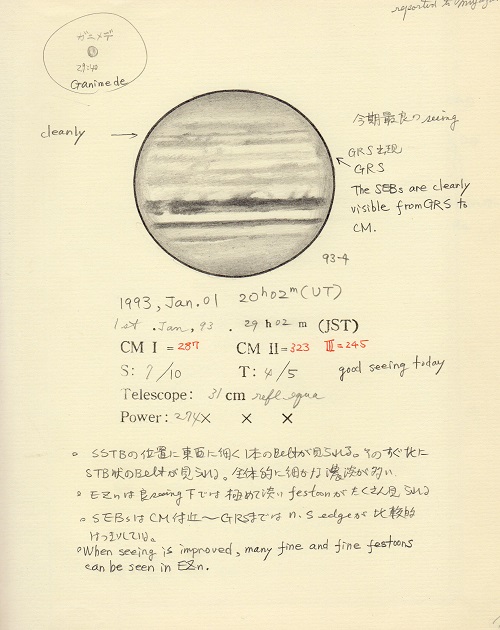 reported to Miyazaki
ガニメデ
29:40
Ganimede
cleanly
今期最良の seeing
GRS出現
GRS
The SEBs are clearly
visible from GRS to
CM.
93-4
1993, Jan. 01 20h02m (UT)
1st .Jan, 93 . 29 h 02 m (JST)
CM I = 287 CM II = 323 III = 245
S: 7/10 T: 4/5 good seeing today
Telescope: 31 cm refl. equa
Power: 274× × ×
。SSTBの位置に東西に細く1本のBeltが見られる。そのすぐ北に
STB状のBeltが見られる。全体的に細かな濃淡が多い
。EZnは良seeing下では極めて淡い festoonがたくさん見られる
。SEBsはCM付近〜GRSまでは n, s edgeが比較的
はっきりしている。
。When seeing is improved, many fine and fine festoons
can be seen in EZn.